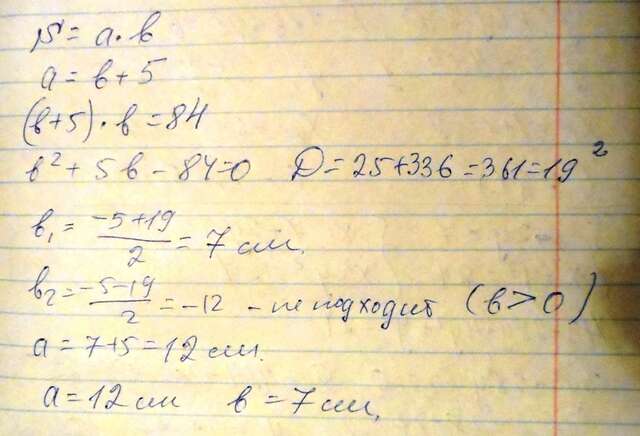 S = a · b
a = b + 5
(b+5) · b = 84
b² + 5b - 84=0 D = 25+336 = 361 = 19²
b₁ = (-5+19)/2 = 7 см.
b₂ = (-5-19)/2 = -12 - не подходит (b > 0)
a = 7+5 = 12 см.
a = 12 см b = 7 см.